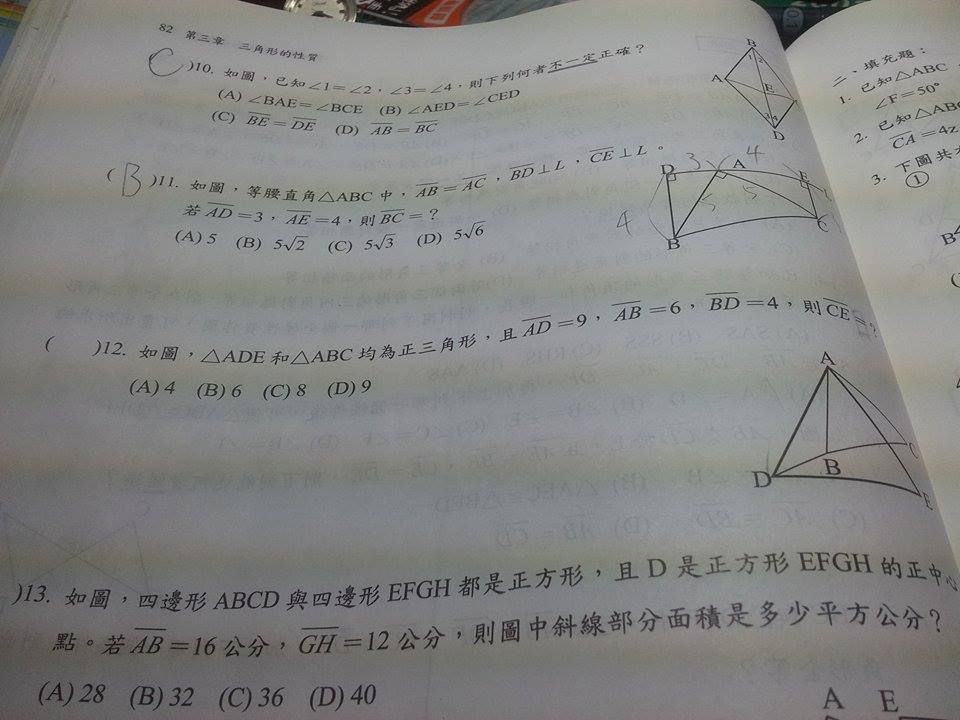 82 第三章 三角形的性質
( C )10. 如圖，已知∠1=∠2，∠3=∠4，則下列何者不一定正確？
(A) ∠BAE=∠BCE (B) ∠AED=∠CED
(C) BE=DE (D) AB=BC
B
1 2
A
E
3 4
D
( B )11. 如圖，等腰直角△ABC 中，AB=AC，BD⊥L，CE⊥L。
若 AD=3，AE=4，則 BC=？
(A) 5 (B) 5√2 (C) 5√3 (D) 5√6
D 3 A 4 E
4 5 5
B C
( )12. 如圖，△ADE 和△ABC 均為正三角形，且 AD=9，AB=6，BD=4，則 CE=？
(A) 4 (B) 6 (C) 8 (D) 9
A
C
B
D
E
)13. 如圖，四邊形 ABCD 與四邊形 EFGH 都是正方形，且 D 是正方形 EFGH 的正中心
點。若 AB=16 公分，GH=12 公分，則圖中斜線部分面積是多少平方公分？
(A) 28 (B) 32 (C) 36 (D) 40
A E
二、填充題：
1. 已知△ABC
∠F=50°
2. 已知△ABC
CA=4z
3. 下圖共
①
B